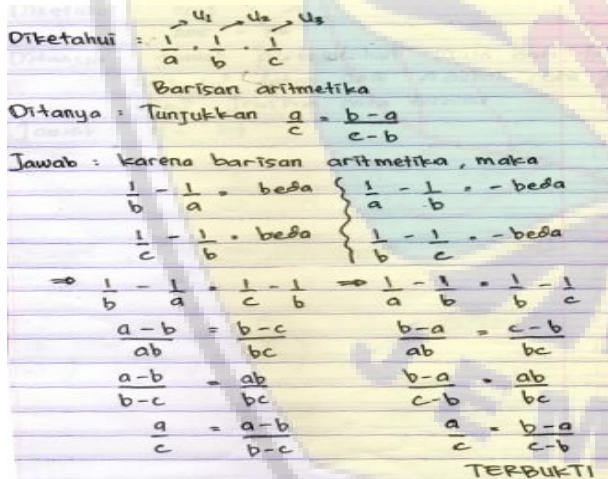 → U1 → U2 → U3
Diketahui : 1/a . 1/b . 1/c
Barisan aritmetika
Ditanya : Tunjukkan a/c = b-a/c-b
Jawab : karena barisan aritmetika, maka
1/b - 1/a = beda { 1/a - 1/b = - beda
1/c - 1/b = beda { 1/b - 1/c = - beda
⇒ 1/b - 1/a = 1/c - 1/b ⇒ 1/a - 1/b = 1/b - 1/c
a-b/ab = b-c/bc b-a/ab = c-b/bc
a-b/b-c = ab/bc b-a/c-b = ab/bc
a/c = a-b/b-c a/c = b-a/c-b
TERBUKTI